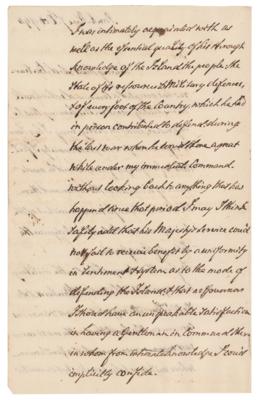 I was intimately acquainted with as
well as the essential quality of his through
knowledge of the Island, the people, the
State of its resources & Military defences,
& of every foot of the Country, which he had
in person contributed to defend during
the last war when he was there a great
while under my immediate Command.
without looking back to anything that has
happened since that period, I may I think
safely add that his Majesty's Service could
not fail to receive benefit by a uniformity
in Sentiment & System as to the mode of
defending the Island, & that as Governor
I should have an unspeakable Satisfaction
in having a Gentleman in Command there
in whom from intimate knowledge I could
implicitly confide.